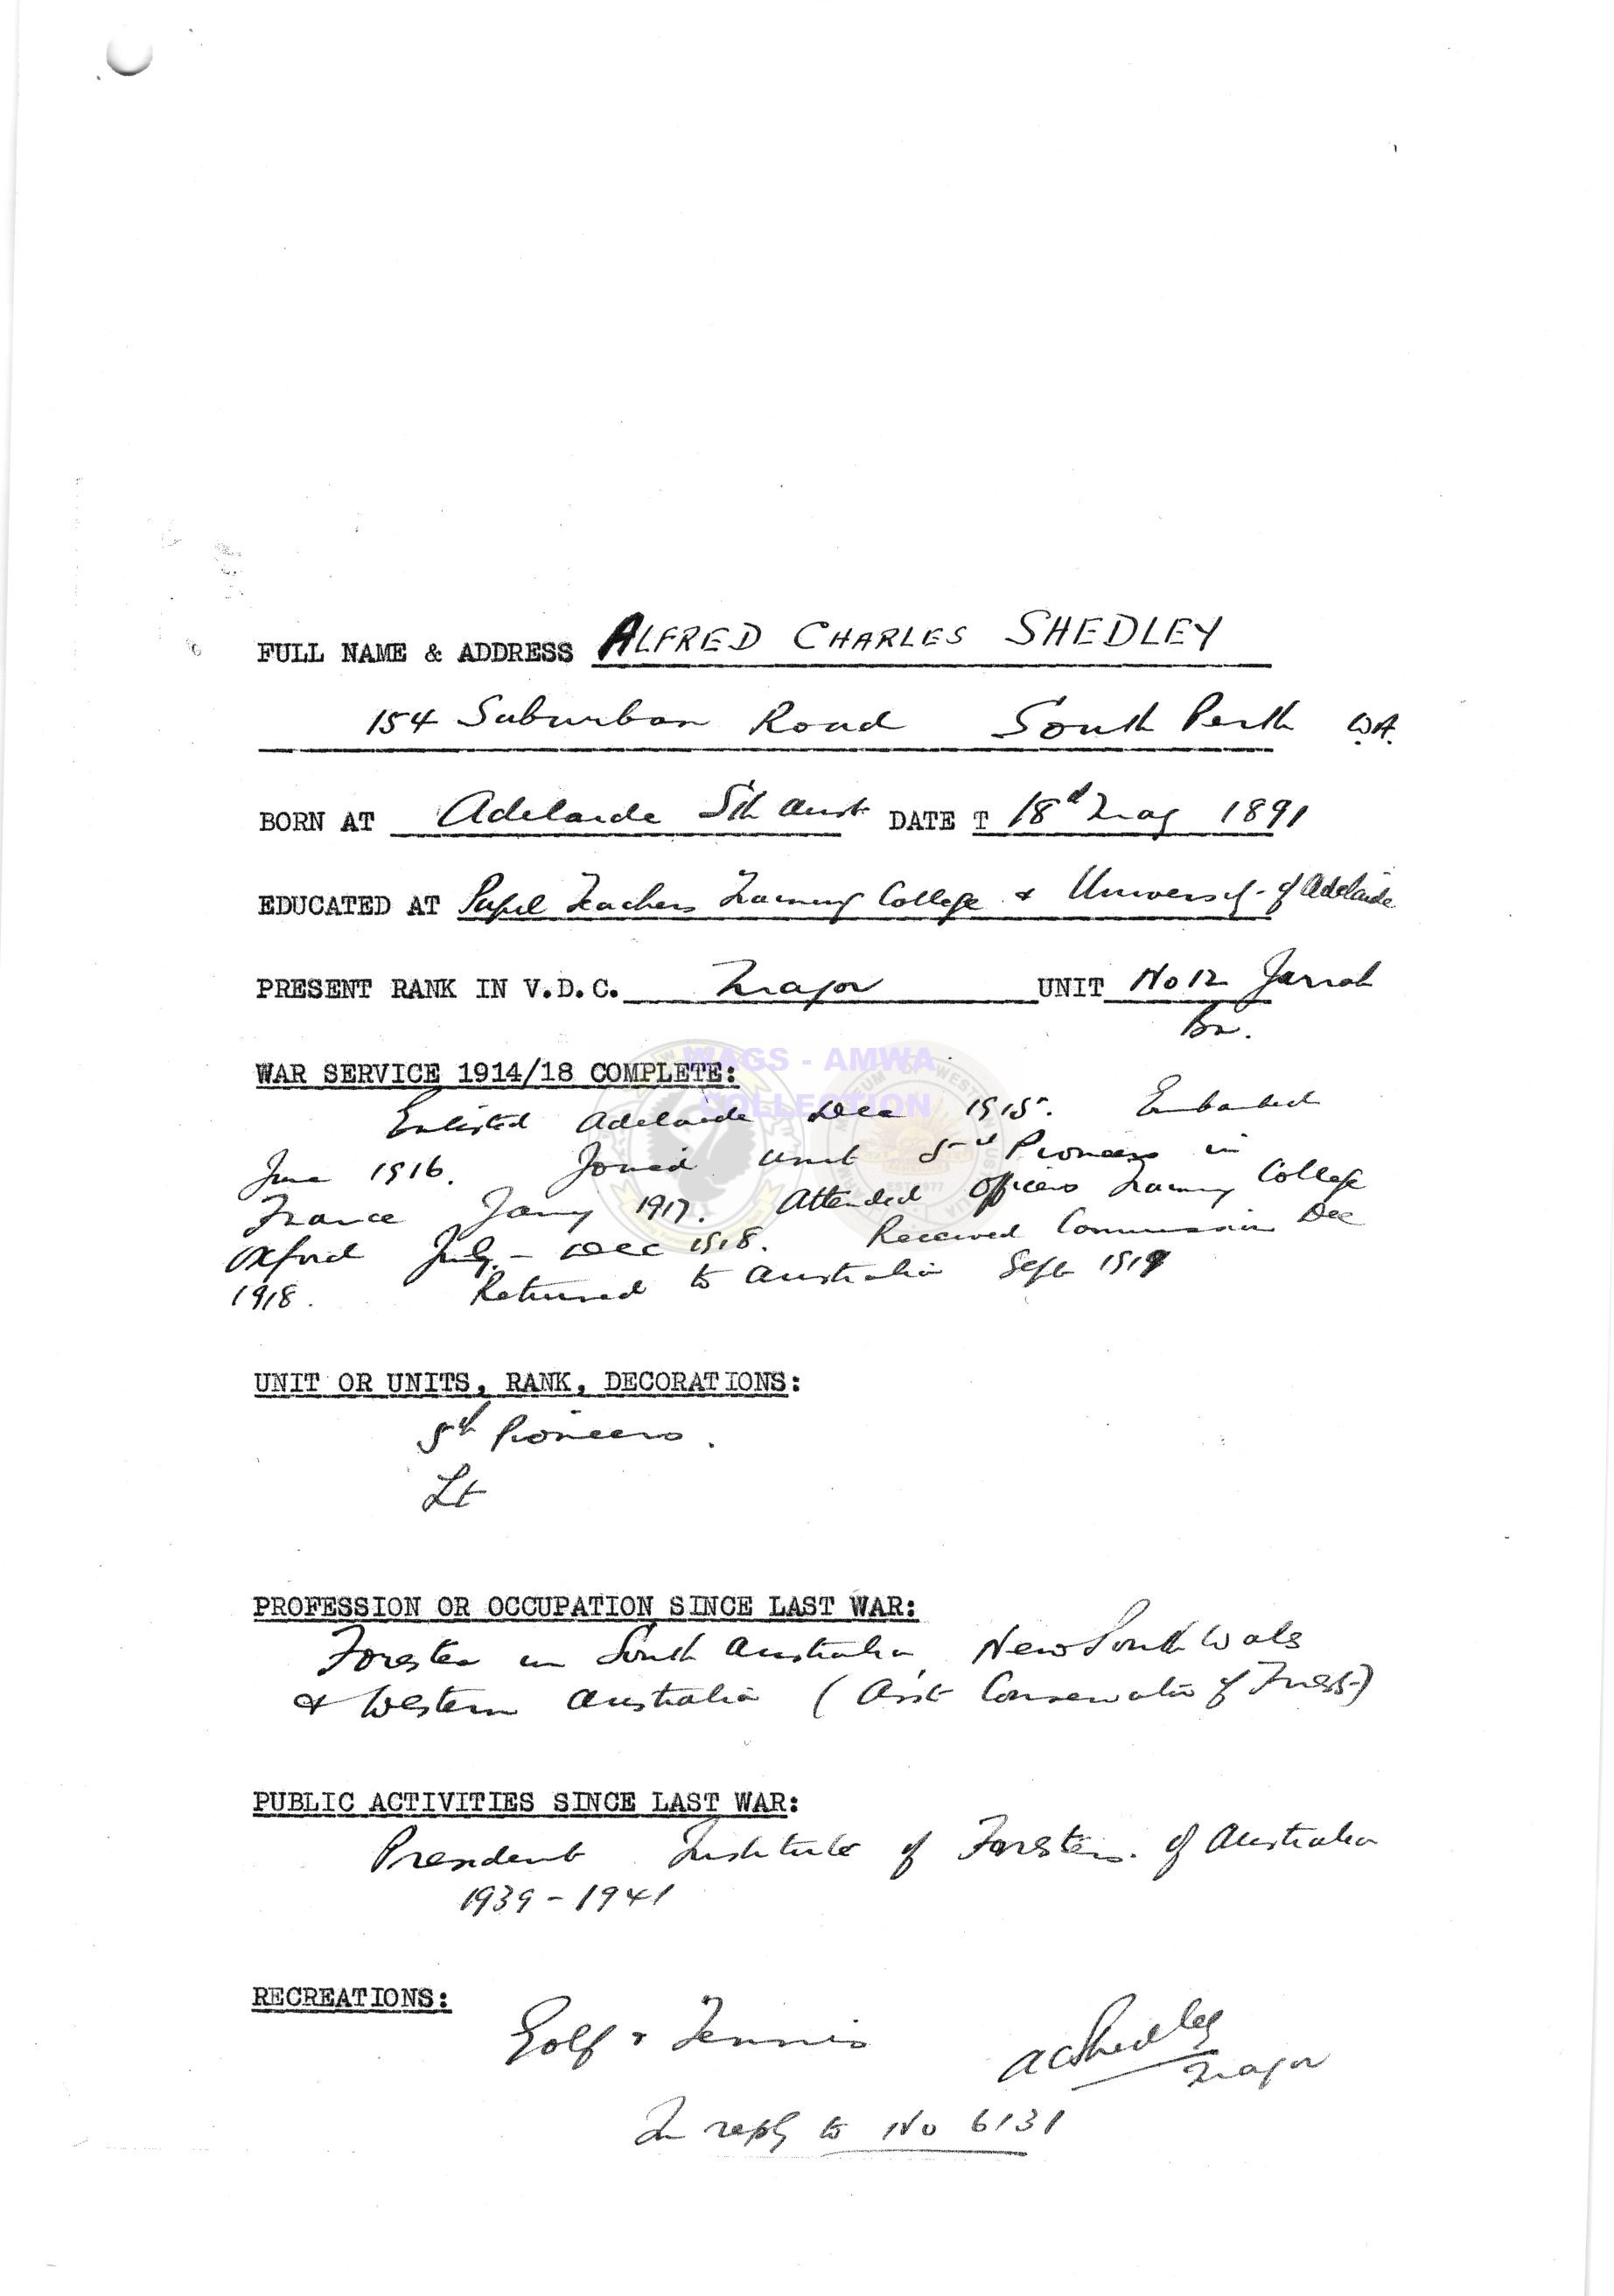 FULL NAME & ADDRESS ALFRED CHARLES SHEDLEY
154 Suburban Road South Perth W.A.
BORN AT Adelaide Sth Aust DATE T 18th May 1891
EDUCATED AT Pupil Teachers Training College & University of Adelaide
PRESENT RANK IN V.D.C. Major UNIT No 12 Jarrah
Bn.
WAGS - AMWA
COLLECTION
WAR SERVICE 1914/18 COMPLETE:
Enlisted Adelaide Dec 1915. Embarked
June 1916. Joined unit 5th Pioneers in
France Jany 1917. Attended Officers Training College
Oxford July - Dec 1918. Received Commission Dec
1918. Returned to Australia Sept 1919
UNIT OR UNITS, RANK, DECORATIONS:
5th Pioneers.
Lt
PROFESSION OR OCCUPATION SINCE LAST WAR:
Forester in South Australia, New South Wales
& Western Australia (Asst Conservator of Forests)
PUBLIC ACTIVITIES SINCE LAST WAR:
President Institute of Foresters of Australia
1939 - 1941
RECREATIONS:
Golf & Tennis
ACShedley
Major
In reply to No 6131